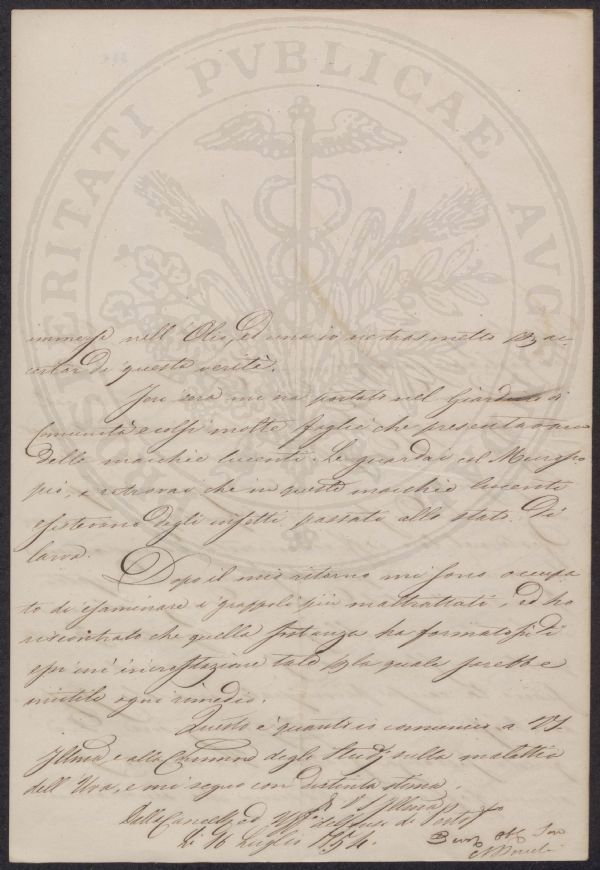 PROSPERITATI PVBLICAE AVGENDAE
immersi nell'Olio, ed uno io ne trasmetto per ac-
certar di questa verità.
Jeri sera mi ha portato nel Giardino di
Comunità e colpi molte foglie che presentavano
delle macchie lucenti. Le guardai col Microsco-
pio, e ritrovai che in queste macchie lucenti
esistevano degli insetti passati allo stato di
larva.
Dopo il mio ritorno mi sono occupa-
to di esaminare i grappoli più maltrattati, ed ho
riscontrato che quella sostanza ha formato su di
essi un'incrostazione tale per la quale sarebbe
inutile ogni rimedio.
Questo è quanto io comunico a VS
Illma e alla Commne degli Studj sulla malattia
dell'Uva, e mi segno con distinta stima.
Di VS Illma
Dalla Cancellia ed Uffo
Li 16 Luglio 1854.